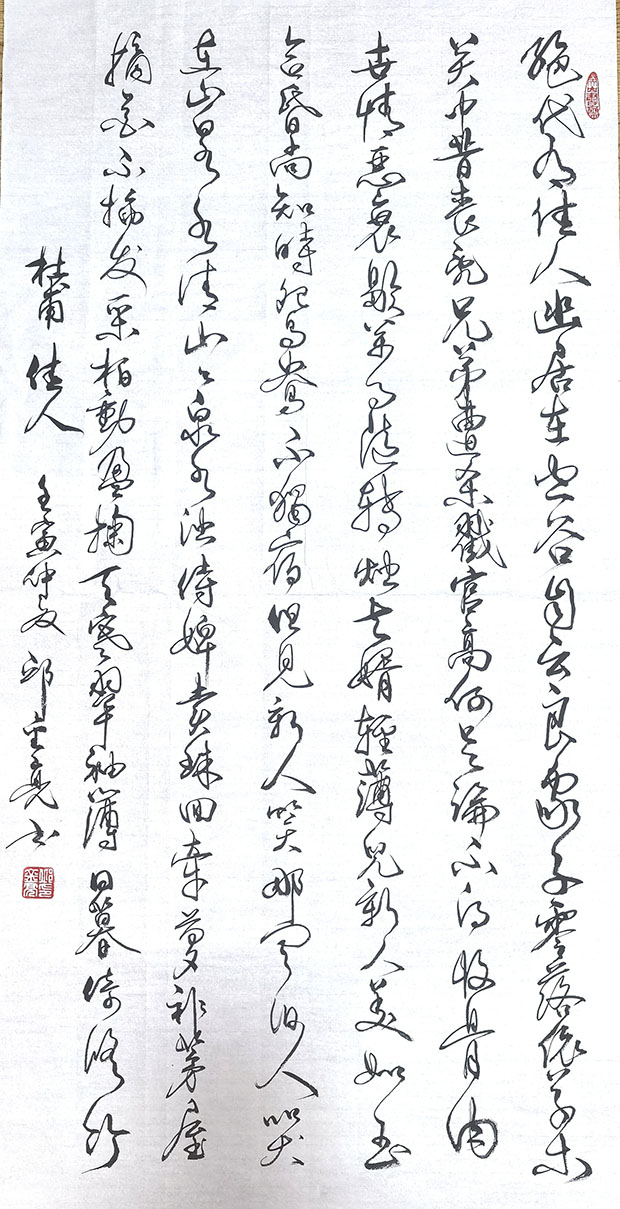 绝代有佳人幽居在空谷自云良家子零落依草木
关中昔丧乱兄弟遭杀戮官高何足論不得收骨肉
世情恶衰歇万事随轉烛夫婿輕薄兒新人美如玉
合昏尚知時鸳鸯不獨宿但見新人笑那闻旧人哭
在山泉水清出山泉水浊侍婢卖珠回牵萝补茅屋
摘花不插发采柏動盈掬天寒翠袖薄日暮倚修竹
杜甫 佳人 壬寅仲夏 邱亮书